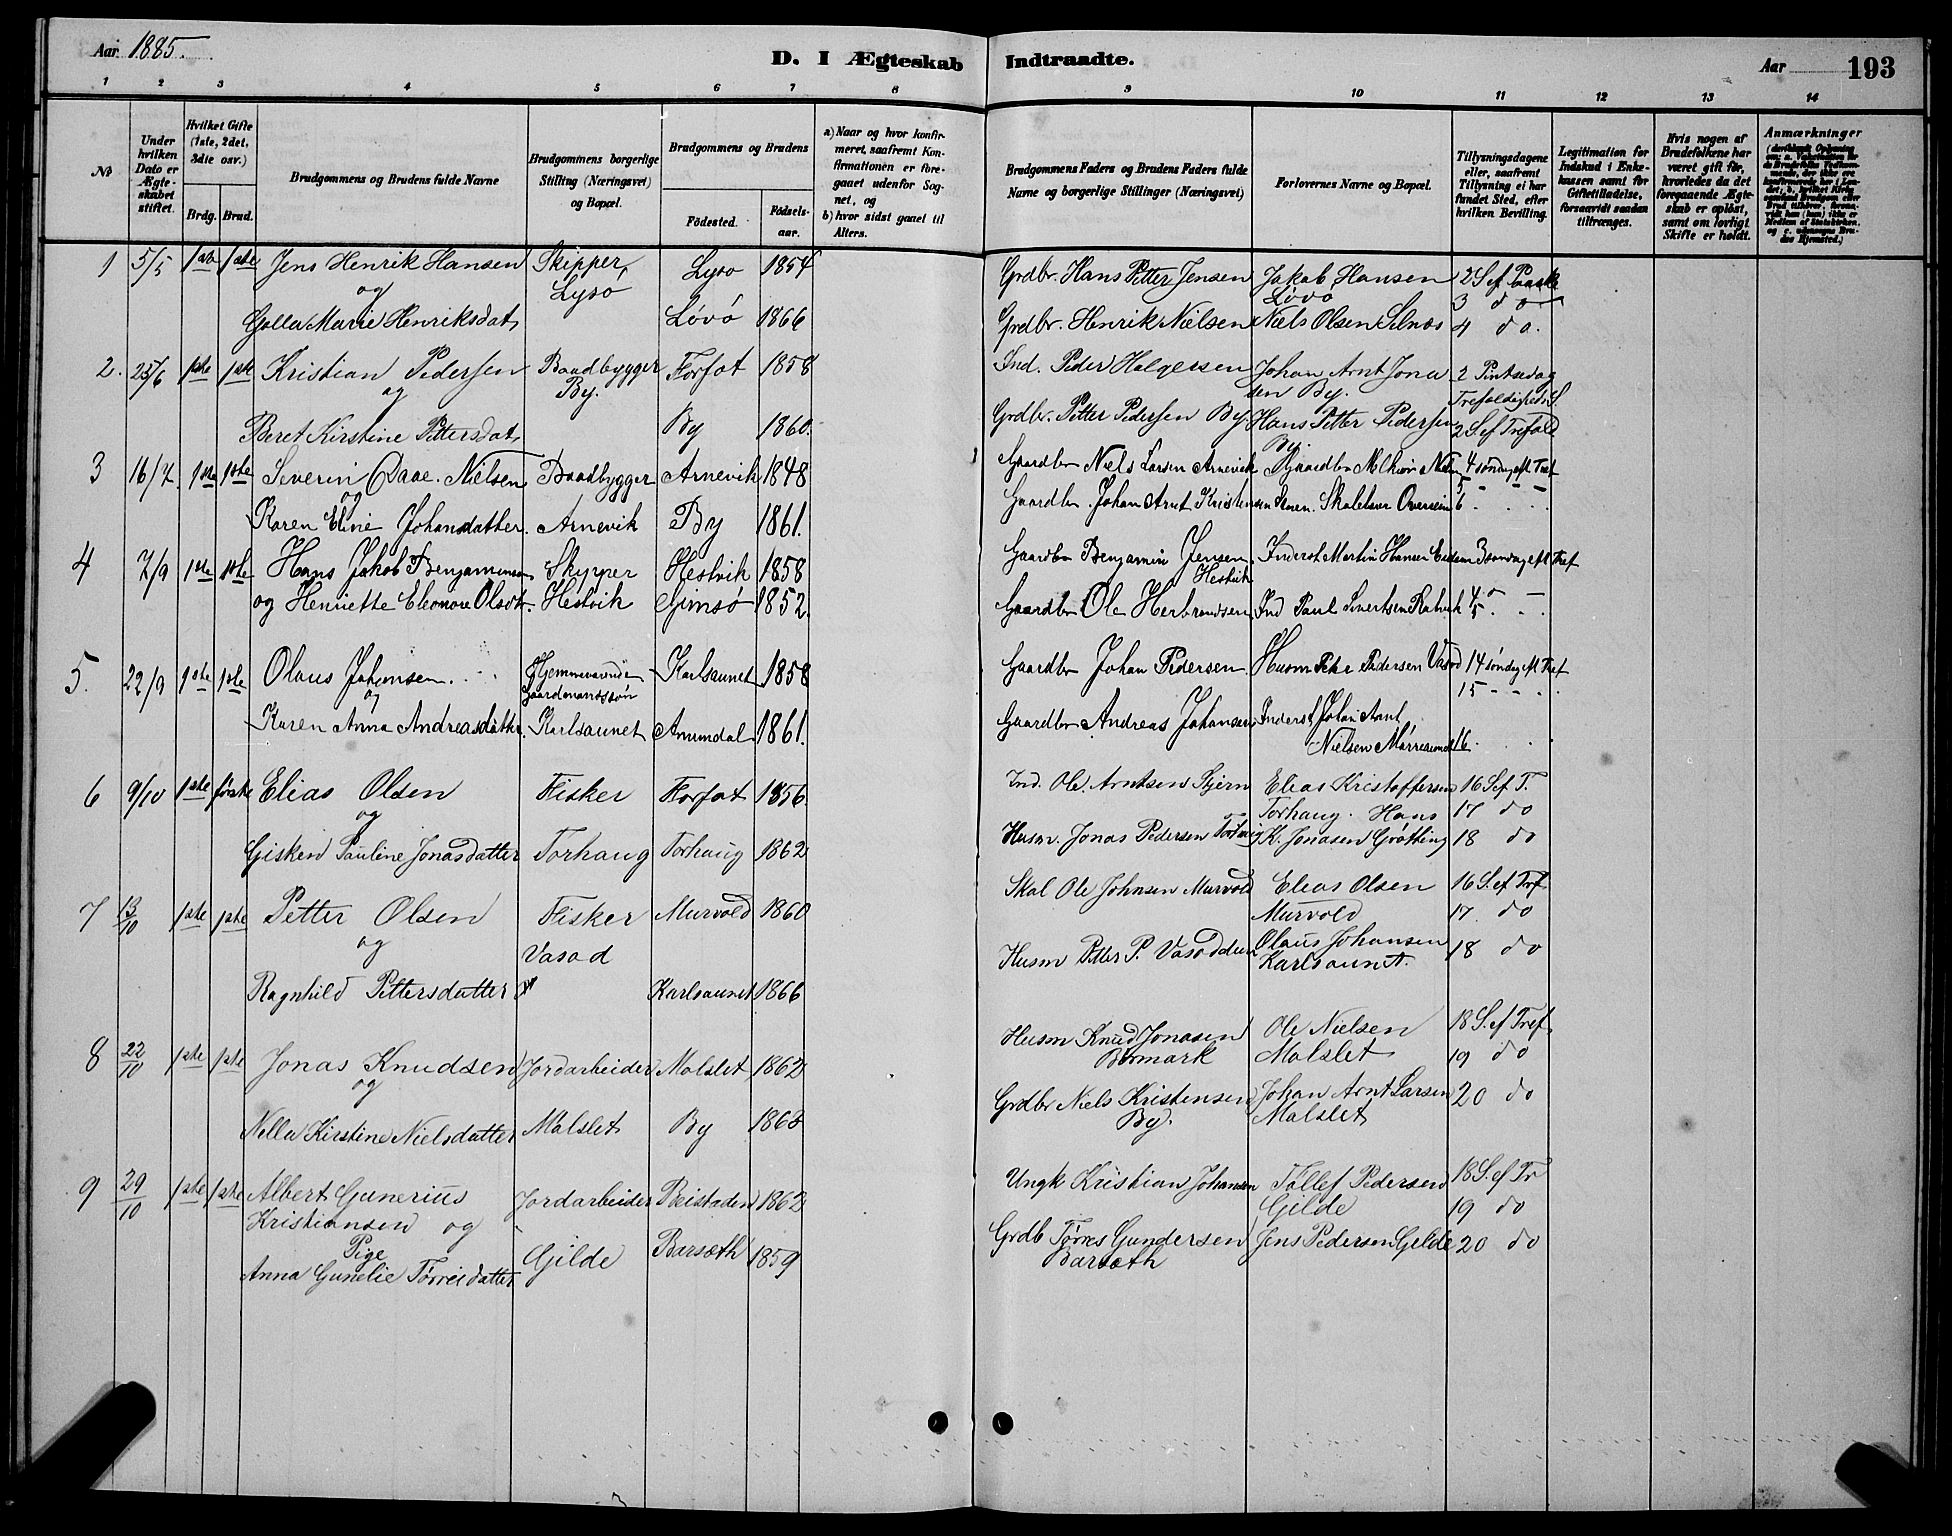 Aar 1885.
D. I Ægteskab Indtraadte.
Aar 193
1 2 3 4 5 6 7 8 9 10 11 12 13 14
No
Under hvilken Dato er Ægteskabet stiftet.
Hvilket Gifte (1ste, 2det, 3die osv.)
Brdg. Brud.
Brudgommens og Brudens fulde Navne
Brudgommens borgerlige Stilling (Næringsvei) og Bopæl.
Brudgommens og Brudens
Födested. Födselsaar.
a) Naar og hvor konfirmeret, saafremt Konfirmationen er foregaaet udenfor Sognet, og
b) hvor sidst gaaet til Alters.
Brudgommens Faders og Brudens Faders fulde Navne og borgerlige Stillinger (Næringsvei)
Forlovernes Navne og Bopæl.
Tillysningsdagene eller, saafremt Tillysning ei har fundet Sted, efter hvilken Bevilling.
Legitimation for Indskud i Enkekassen samt for Giftetilladelse, forsaavidt saadan tiltrænges.
Hvis nogen af Brudefolkene har været gift för, hvorledes da det foregaaende Ægteskab er oplöst, samt om lovligt Skifte er holdt.
Anmærkninger
1 5/5 1ste 1ste Jens Henrik Hansen Skipper Lysø 1854 Grdbr. Hans Petter Jensen Jakob Hansen 2 S ef Paaske
og Lysø Løvø 3 do
Golla Marie Henriksdat Løvø 1866 Grdbr. Henrik Nielsen Niels Olsen Selnæs 4 do.
2. 25/6 1ste 1ste Kristian Pedersen Baadbygger Forfot 1858 Ind. Peder Holgersen Johan Arnt Jona 2 Pintsedag
og By. sen By. Trefoldigheds S.
Beret Kirstine Pettersdat By 1860. Grdbr. Petter Pedersen By. Hans Petter Pedersen 2 S ef Trefold
By.
3 16/7 1ste 1ste Severin Daae Nielsen Baadbygger Arnevik 1848 Gaardbr Niels Larsen Arnevik Gaardbr Melkior Niels 4 søndag eft Tref
og 5 - - -
Karen Eline Johansdatter. Arnevik By 1861. Gaardbr. Johan Arnt Kristensen Skolelærer 6
4 7/9 1ste 1ste Hans Jakob Benjaminsen Skypper Hestvik 1858 Gaardbr Benjamin Jensen Hestvik Inderst Martin Hansen 3 søndag eft Tref
og Henriette Eleonore Olsdt. Hestvik Gimsø 1852. Gaardbr Ole Herbrandsen Ind Paul Sivertsen 4 5.
5. 22/9 1ste 1ste Olaus Johansen Hjemmeværende Karlsaunet 1858 Gaardbr Johan Pedersen Husm Peter Pedersen Vasød 14 søndag eft Tref
og Gaardmandssøn 15 - - .
Karen Anna Andreasdatter. Karlsaunet Amundal 1861. Gaardbr Andreas Johansen Inderst Johan Arnt
Nielsen 16
6 9/10 1ste første Elias Olsen Fisker Forfot 1856 Ind. Ole Arntsen Stjern Elias Kristoffersen 16 S ef T.
og Torhaug. Hans 17 do
Gisken Pauline Jonasdatter Torhaug Torhaug 1862 Husm. Jonas Pedersen Torhaug K. Jonasen Grøtting 18 do
7 13/10 1ste 1ste Petter Olsen Fisker Murvold 1860 Skol Ole Johnsen Murvold Elias Olsen 16 S. ef Tref
og Vasød Murvold 17. do
Husm Petter P. Vasøddeen Olaus Johansen 18 do
Karlsaunet.
Ragnhild Pettersdatter Karlsaunet 1866
8 22/10 1ste 1ste Jonas Knudsen Jordarbeider Malslet 1862 Husm Knud Jonasen Ole Nielsen 18 S. ef Tref
og Bormark Malslet 19 do
Nella Kirstine Nielsdatter Malslet By 1863 Grdbr Niels Kristensen Johan Arnt Larsen 20 do
By. Malslet
9 29/10 1ste 1ste Albert Gunerius Jordarbeider Beistaden 1862 Ungk Kristian Johansen Tollef Pedersen 18 S. ef Tr
Kristiansen og Gilde 19 do
Pige Gilde Barsøth 1859 Grdb Tørres Gundersen Jens Pedersen Gilde 20 do
Anna Gunelie Tørresdatter Barsøth